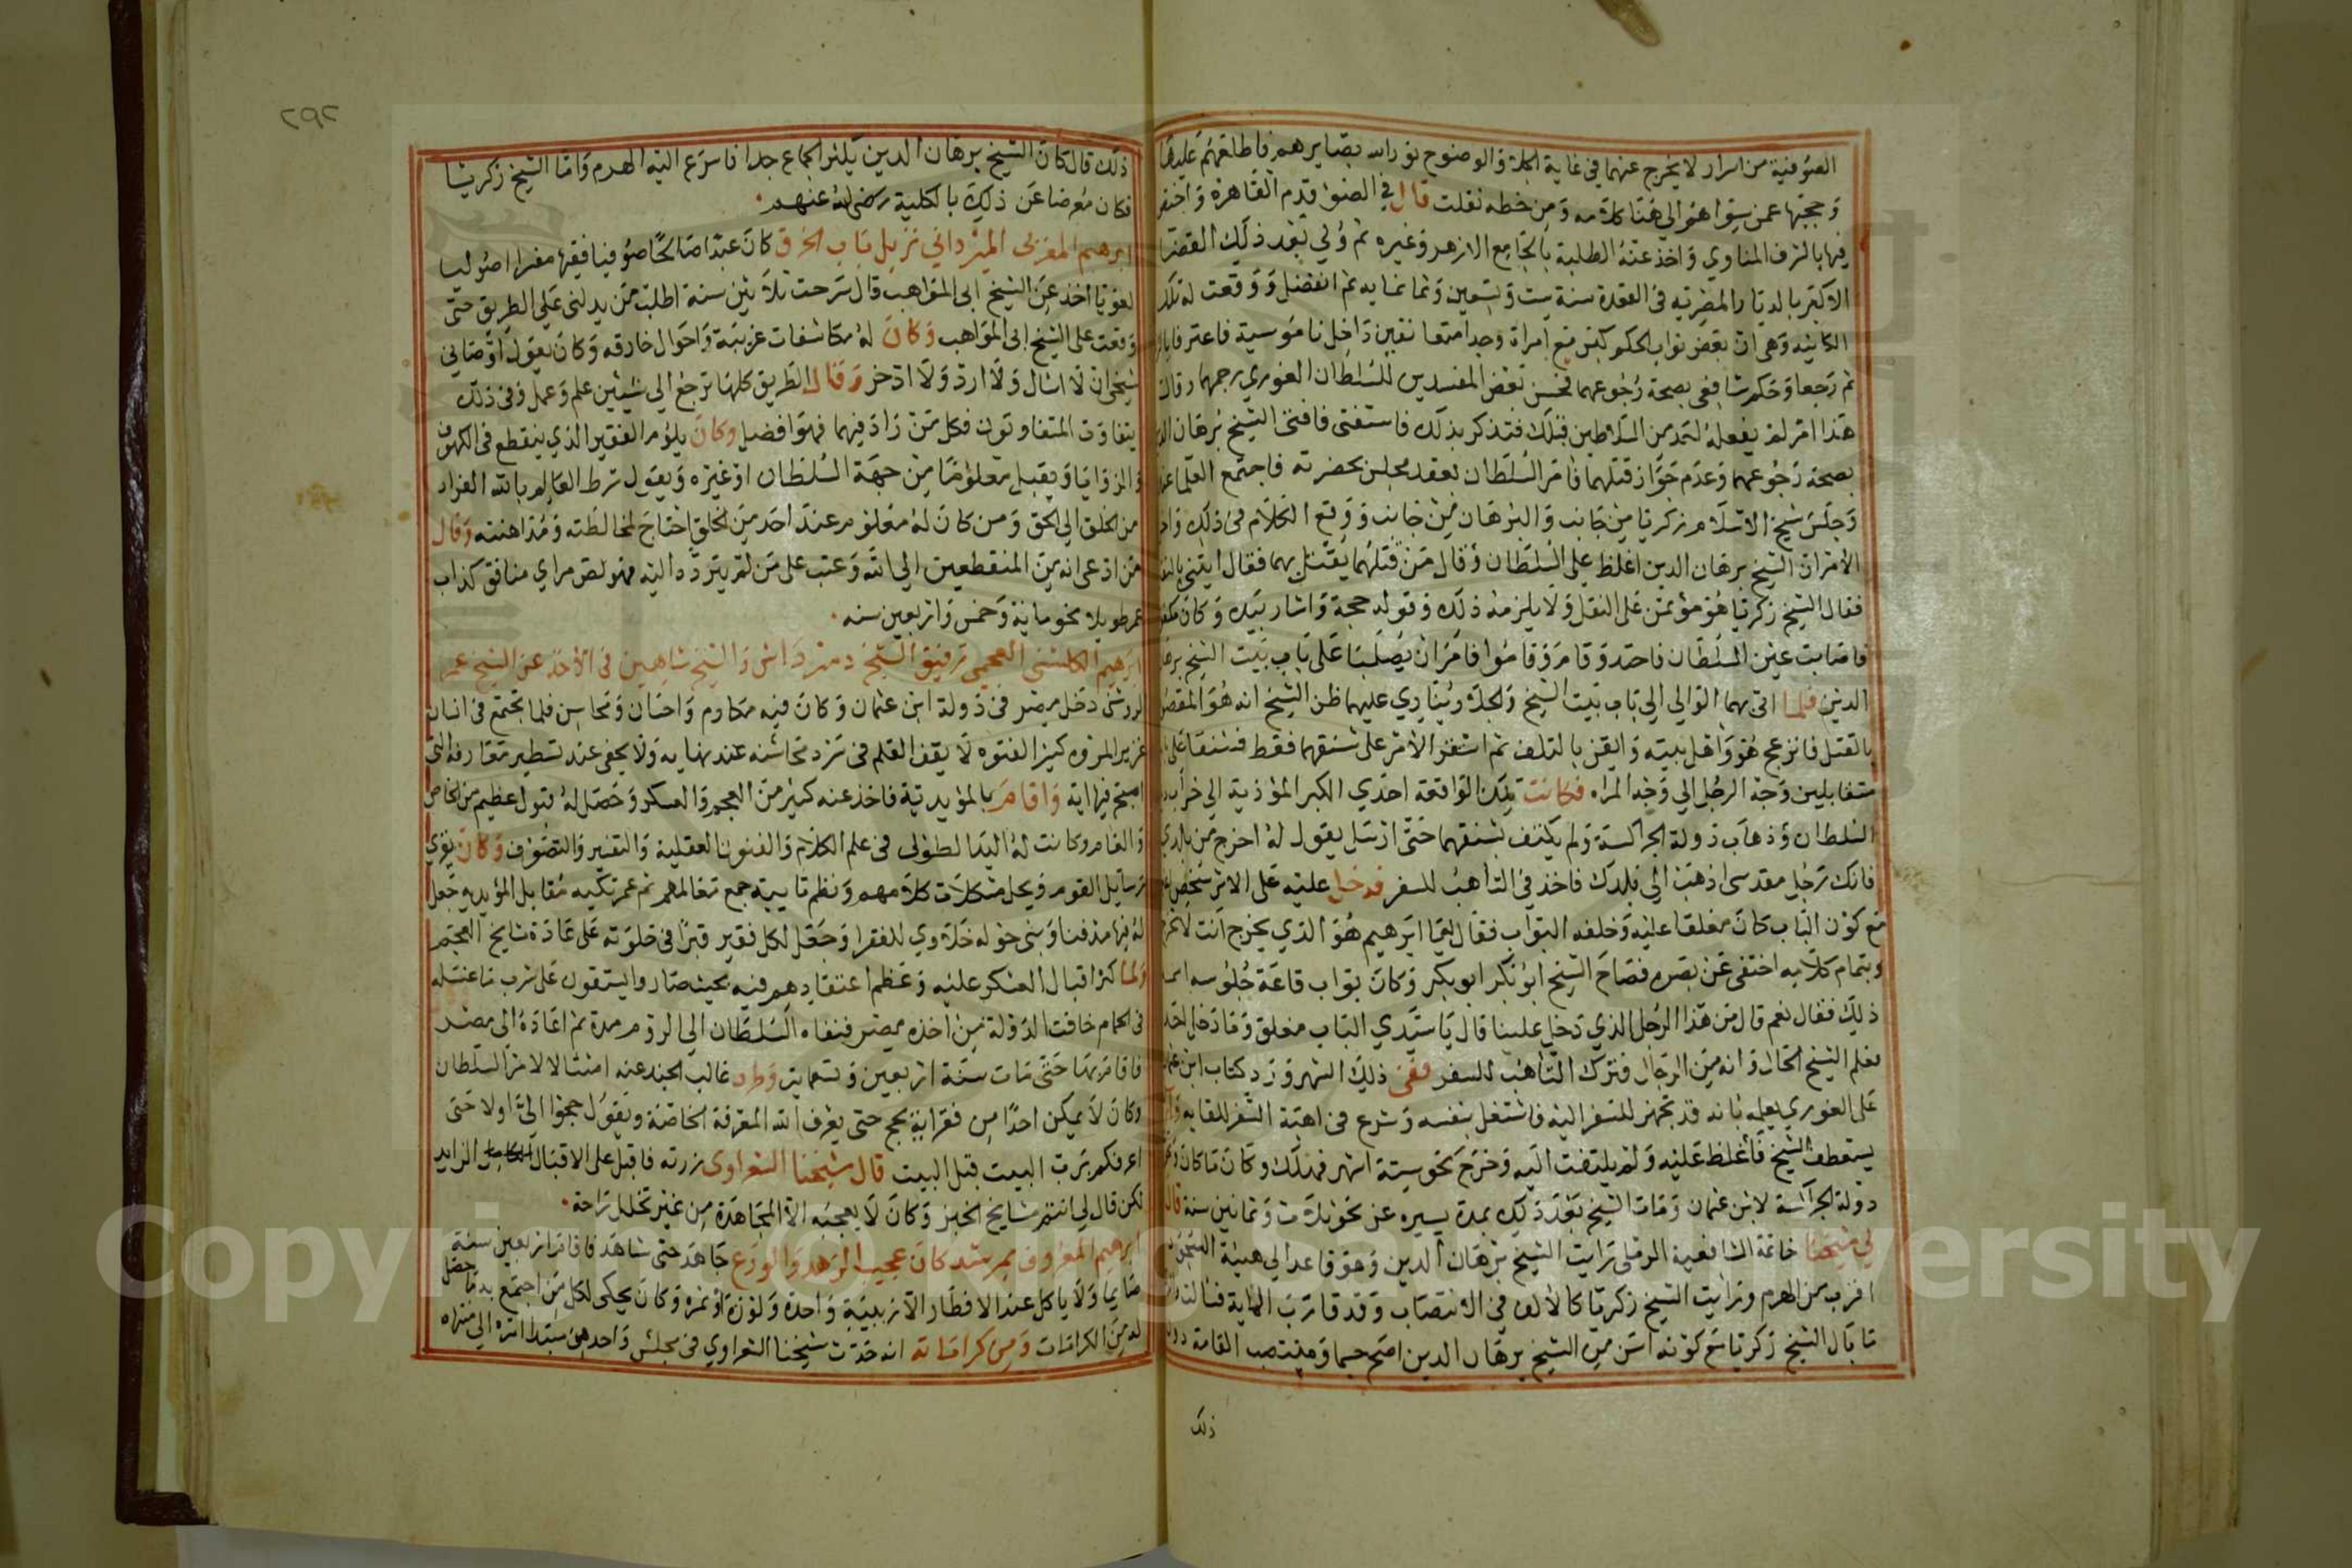 الصوفية من اسرار لا يخرج عنهما في غاية الجلا والوضوح نورالله بصايرهم فاطلعهم عليها
وحجبها عمن سواهم الي هنا كلامه ومن خطه نقلت قال في الضو قدم القاهرة واختص
فيها بالشرف المناوي واخذ عنه الطلبة بالجامع الازهر وغيره ثم ولي بعد ذلك القضا
الاكبر بالديار المصريه في القعدة سنة ست وتسعين وثمانمايه ثم انفصل ووقعت له تلك
الكاينه وهي ان بعض نواب الحكم مع امراة وجدا متعانقين داخل ناموسية فاعترفا بالزنا
ثم رجعا وحكم شافعي بصحة رجوعهما فحسن بعض المفسدين للسلطان الغوري رجمهما وقال
هذا امر لم يفعله احد من السلاطين قبلك فتذكر بذلك فاستفتى فافتى الشيخ برهان الدين
بصحة رجوعهما وعدم جواز قتلهما فامر السلطان بعقد مجلس بحضرته فاجتمع العلما عنده
وجلس شيخ الاسلام زكريا من جانب والبرهان من جانب ووقع الكلام في ذلك
الامر ان الشيخ برهان الدين اغلظ علي السلطان وقال من قتلهما يقتل بهما فقال ايتني بالنقل
فقال الشيخ زكريا هو مؤتمن على النقل ولا يلزمه ذلك وقوله حجة واشار بيده وكان مكفوفا
فاصابت عين السلطان فاحتد وقام وقاموا فامر ان يصلبا على باب بيت الشيخ برهان
الدين فلما اتى بهما الوالي الي باب بيت الشيخ والجلاد ينادي عليهما ظن الشيخ انه هو المقصود
بالقتل فانزعج هو واهل بيته وايقن بالتلف ثم استقر الامر على شنقهما فقط فشنقا على بابه
متقابلين وجه الرجل الي وجه المراه فكانت تلك الواقعة احدي الكبر المؤذية الي خراب
السلطان وذهاب دولة الجراكسة ولم يكتف بشنقهما حتى ارسل يقول له اخرج من بلدي
فانك رجل مقدسي اذهب الي بلدك فاخذ في التاهب للسفر فدخل عليه على الاثر شخص
مع كون الباب كان مغلقا عليه وخلفه البواب فقال يا ابرهيم هو الذي يخرج انت لا تخرج
وبتمام كلامه اختفى عن بصره فصاح الشيخ ابو بكر ابو بكر وكان بواب قاعة جلوسه
ذلك فقال نعم قال من هذا الرجل الذي دخل علينا قال يا سيدي الباب مغلق وما دخل احد
فعلم الشيخ الحال وانه من الرجال فترك التاهب للسفر ففي ذلك الشهر ورد كتاب ابن عثمان
على الغوري يعلمه بانه قد تجهز للسفر اليه فاشتغل بنفسه وشرع في اهبة السفر للقايه
يستعطف الشيخ فأغلظ عليه ولم يلتفت اليه وخرج نحو ستة اشهر فهلك وكان ما كان
دولة الجراكسة لابن عثمان ومات الشيخ بعد ذلك بمدة يسيره عن نحو ثلاث وثمانين سنة قال
لي شيخنا خاتمة الشافعية الرملي رايت الشيخ برهان الدين وهو قاعد الي هيئة السجود
اقرب من الهرم ورايت الشيخ زكريا كالالف في الانتصاب وقد قارب الماية فسالت
ما بال الشيخ زكريا مع كونه اسن من الشيخ برهان الدين اصح جسما ومنتصب القامة دون
ذلك
٢٩٢
ذلك قال كان الشيخ برهان الدين يكثر الجماع جدا فاسرع اليه الهرم واما الشيخ زكريا
فكان معرضا عن ذلك بالكلية رضى الله عنهم
ابرهيم المغربى نزيل باب الخرق كان عبدا صالحا صوفيا فقيها مقرا اصوليا
لغويا اخذ عن الشيخ ابى المواهب قال سرحت ثلاثين سنة اطلب من يدلنى علي الطريق حتى
وقعت على الشيخ ابى المواهب وكان له مكاشفات غريبة واحوال خارقه وكان يقول اوصاني
شيخى ان لا اسال ولا ارد ولا ادخر وقال الطريق كلها ترجع الي شيئين علم وعمل وفى ذلك
يتفاوت المتفاوتون فكل من زاد فيهما فهو افضل وكان يلوم الفقير الذي ينقطع فى الكهوف
والزوايا ويقبل معلوما من جهة السلطان او غيره ويقول شرط العالم بالله الفرار
من الخلق الي الحق ومن كان له معلوم عند احد من الخلق احتاج لمخالطته ومداهنته وقال
من ادعى انه من المنقطعين الي الله وعتب على من لم يتردد اليه فهو لص مراي منافق كذاب
عمر طويلا نحو ماية وخمس واربعين سنه
ابرهيم الكلشنى العجمى رفيق الشيخ دمرداش والشيخ شاهين فى الاخذ عن الشيخ عمر
الروشنى دخل مصر فى دولة ابن عثمان وكان فيه مكارم واحسان ومحاسن قلما تجتمع فى انسان
غزير المروه كثير الفتوه لا يقف القلم فى سرد محاسنه عند نهايه ولا يحفى عند تسطير معارفه التى
اصبح فيها اية واقام بالمؤيدية فاخذ عنه كثير من العجم والعسكر وحصل له قبول عظيم من الخاص
والعام وكانت له اليد الطولى فى علم الكلام والفنون العقلية والتفسير والتصوف وكان يقري
رسايل القوم ويحل مشكلات كلامهم ونظم تاييه جمع معالمهم ثم عمر تكيه مقابل المؤيديه جعل
له فيها مدفنا وبنى حوله خلاوي للفقرا وجعل لكل فقير قبرا فى خلوته على عادة مشايخ العجم
ولما كثر اقبال العسكر عليه وعظم اعتقادهم فيه بحيث صاروا يستقون على شرب ما غسله
فى الحمام خافت الدولة من اخذه مصر فنفاه السلطان الي الروم مدة ثم اعاده الى مصر
فاقام بها حتى مات سنة اربعين وتسعماية وطرد غالب الجند عنه امتثالا لامر السلطان
وكان لا يمكن احدًا من فقرائه يحج حتى يعرف الله المعرفة الخاصة ويقول حجوا الىّ اولا حتى
اعرفكم برب البيت قبل البيت قال شيخنا الشعراوى زرته فاقبل على الاقبال الزايد
لكن قال لي انتم مشايخ الخبز وكان لا يعجبه الا المجاهدة من غير تخلل راحة
ابرهيم المعروف بمرشد كان عجيب الزهد والورع جاهد حتى شاهد فاقام اربعين سنة
صايما ولا ياكل عند الافطار الا زبيبة واحدة ولوزة او تمرة وكان يحكى لكل من اجتمع به ما حصل
له من الكرامات ومن كراماته انه حدث شيخنا الشعراوي فى مجلس واحد من مبتدا امره الي منتهاه
Copyright © King Saud University